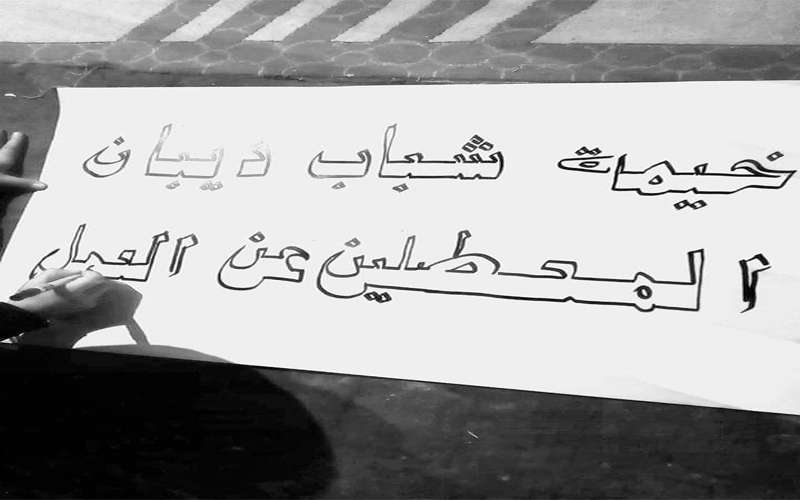 خيمات شباب ذيبان
المعطلين عن العمل